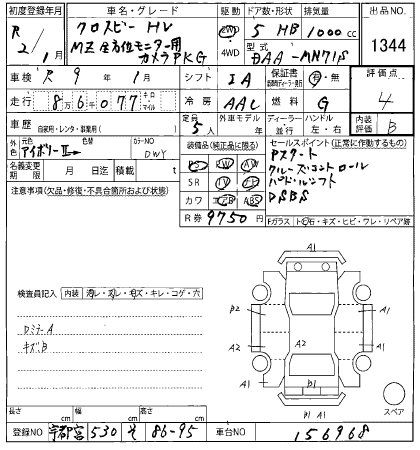 初度登録年月 車名・グレード 駆動 ドア数・形状 排気量 出品NO.
R 2/1月 クロスビー HV 2WD 5 HB 1000 cc 1344
MZ 全方位モニター用 4WD 型式
カメラPKG DAA-MN71S
車検 R 9年 1月 シフト IA 保証書 有・無 評価点
走行 8万6千077 キロ マイル 冷房 AAC 燃料 G 4
車歴 自家用・レンタ・事業用( ) 定員 5人 外車モデル 年 ディーラー 並行 ハンドル 左・右 内装評価 B
外色 元色 アイボリーⅡ 色替 カラーNO DWY
装備品(純正品に限る) セールスポイント(正常に作動するもの)
名義変更期限 月 日迄 積載 t
PS PW AW
SR TV ナビ
カワ エアB ABS
R券 9750円
Pスタート
クルーズコントロール
パドルシフト
DSBS
注意事項(欠品・修復・不具合箇所および状態)
Fガラス トビ石・キズ・ヒビ・ワレ・リペア跡
検査員記入 内装 汚レ・スレ・キズ・キレ・コゲ・穴
ロミラーA
キズB
A1
A1
A1
A2
A2
A2
A1
B1
B1 A1
スペア
長さ cm 幅 cm 高さ cm
登録NO 宇都宮 530 そ 86-95 車台NO 156968